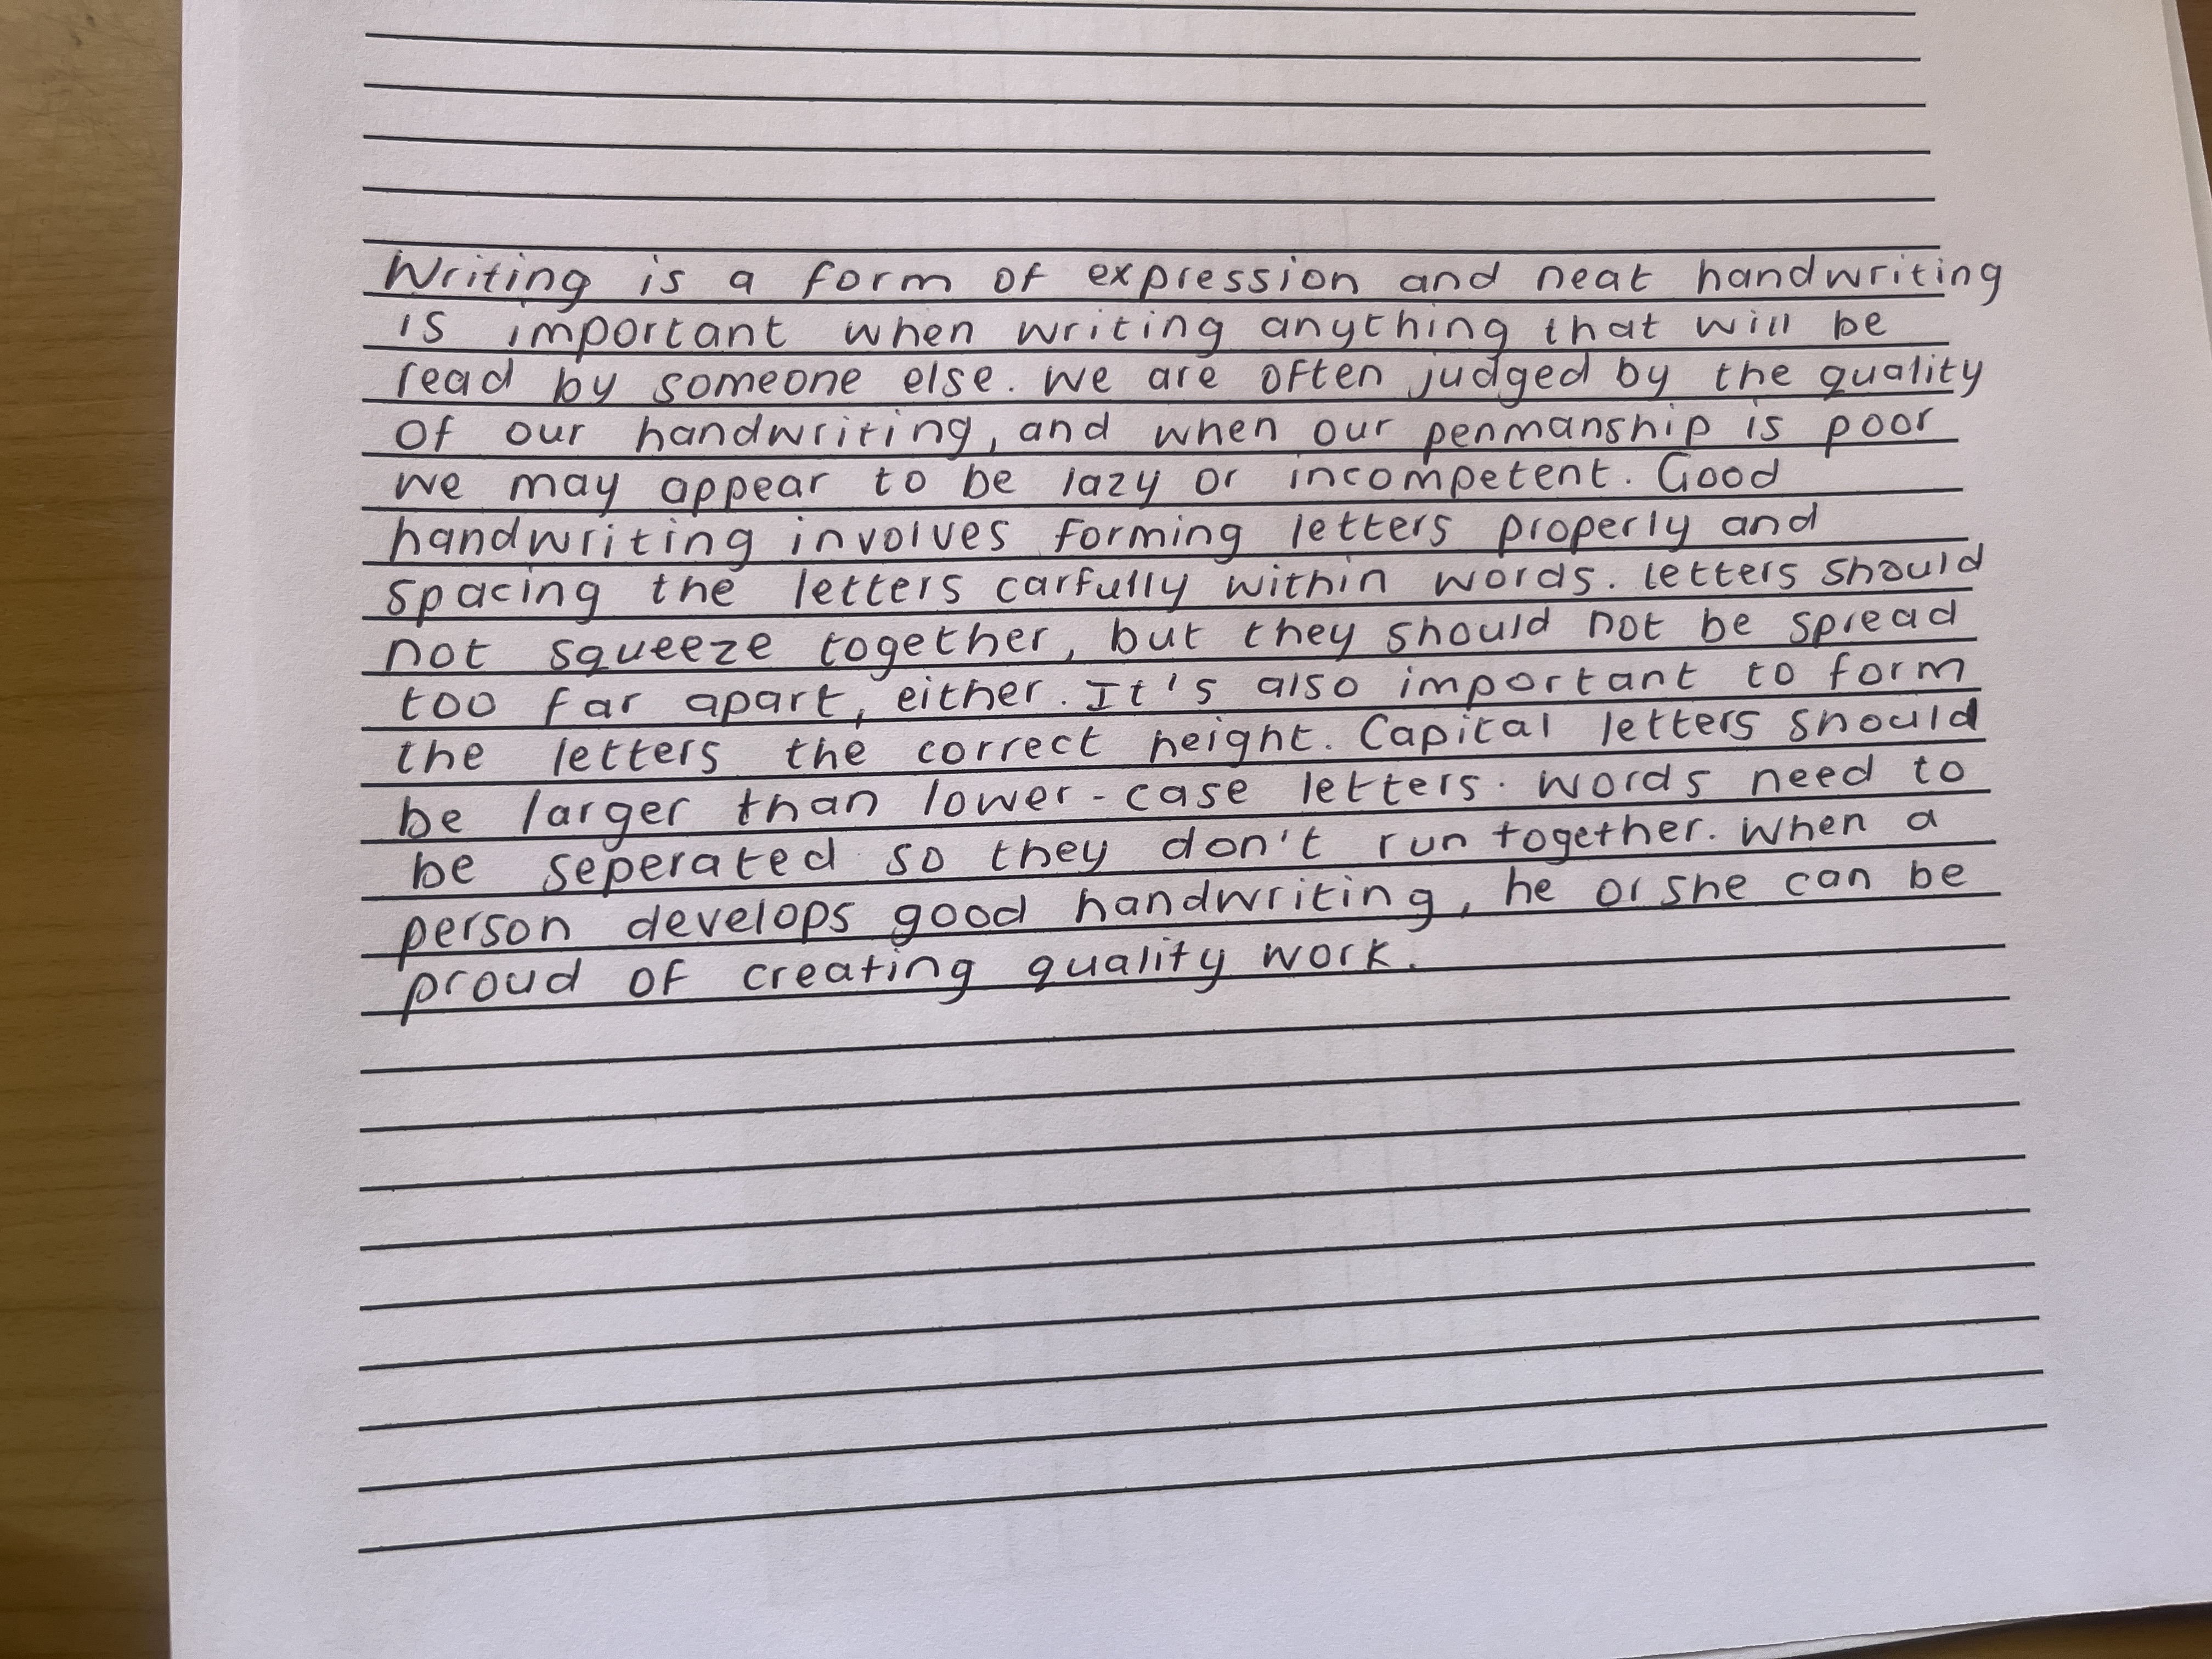 Writing is a form of expression and neat handwriting
is important when writing anything that will be
read by someone else. We are often judged by the quality
of our handwriting, and when our penmanship is poor
we may appear to be lazy or incompetent. Good
handwriting involves forming letters properly and
spacing the letters carfully within words. letters should
not squeeze together, but they should not be spread
too far apart, either. It's also important to form
the letters the correct height. Capital letters should
be larger than lower-case letters. Words need to
be seperated so they don't run together. When a
person develops good handwriting, he or she can be
proud of creating quality work.